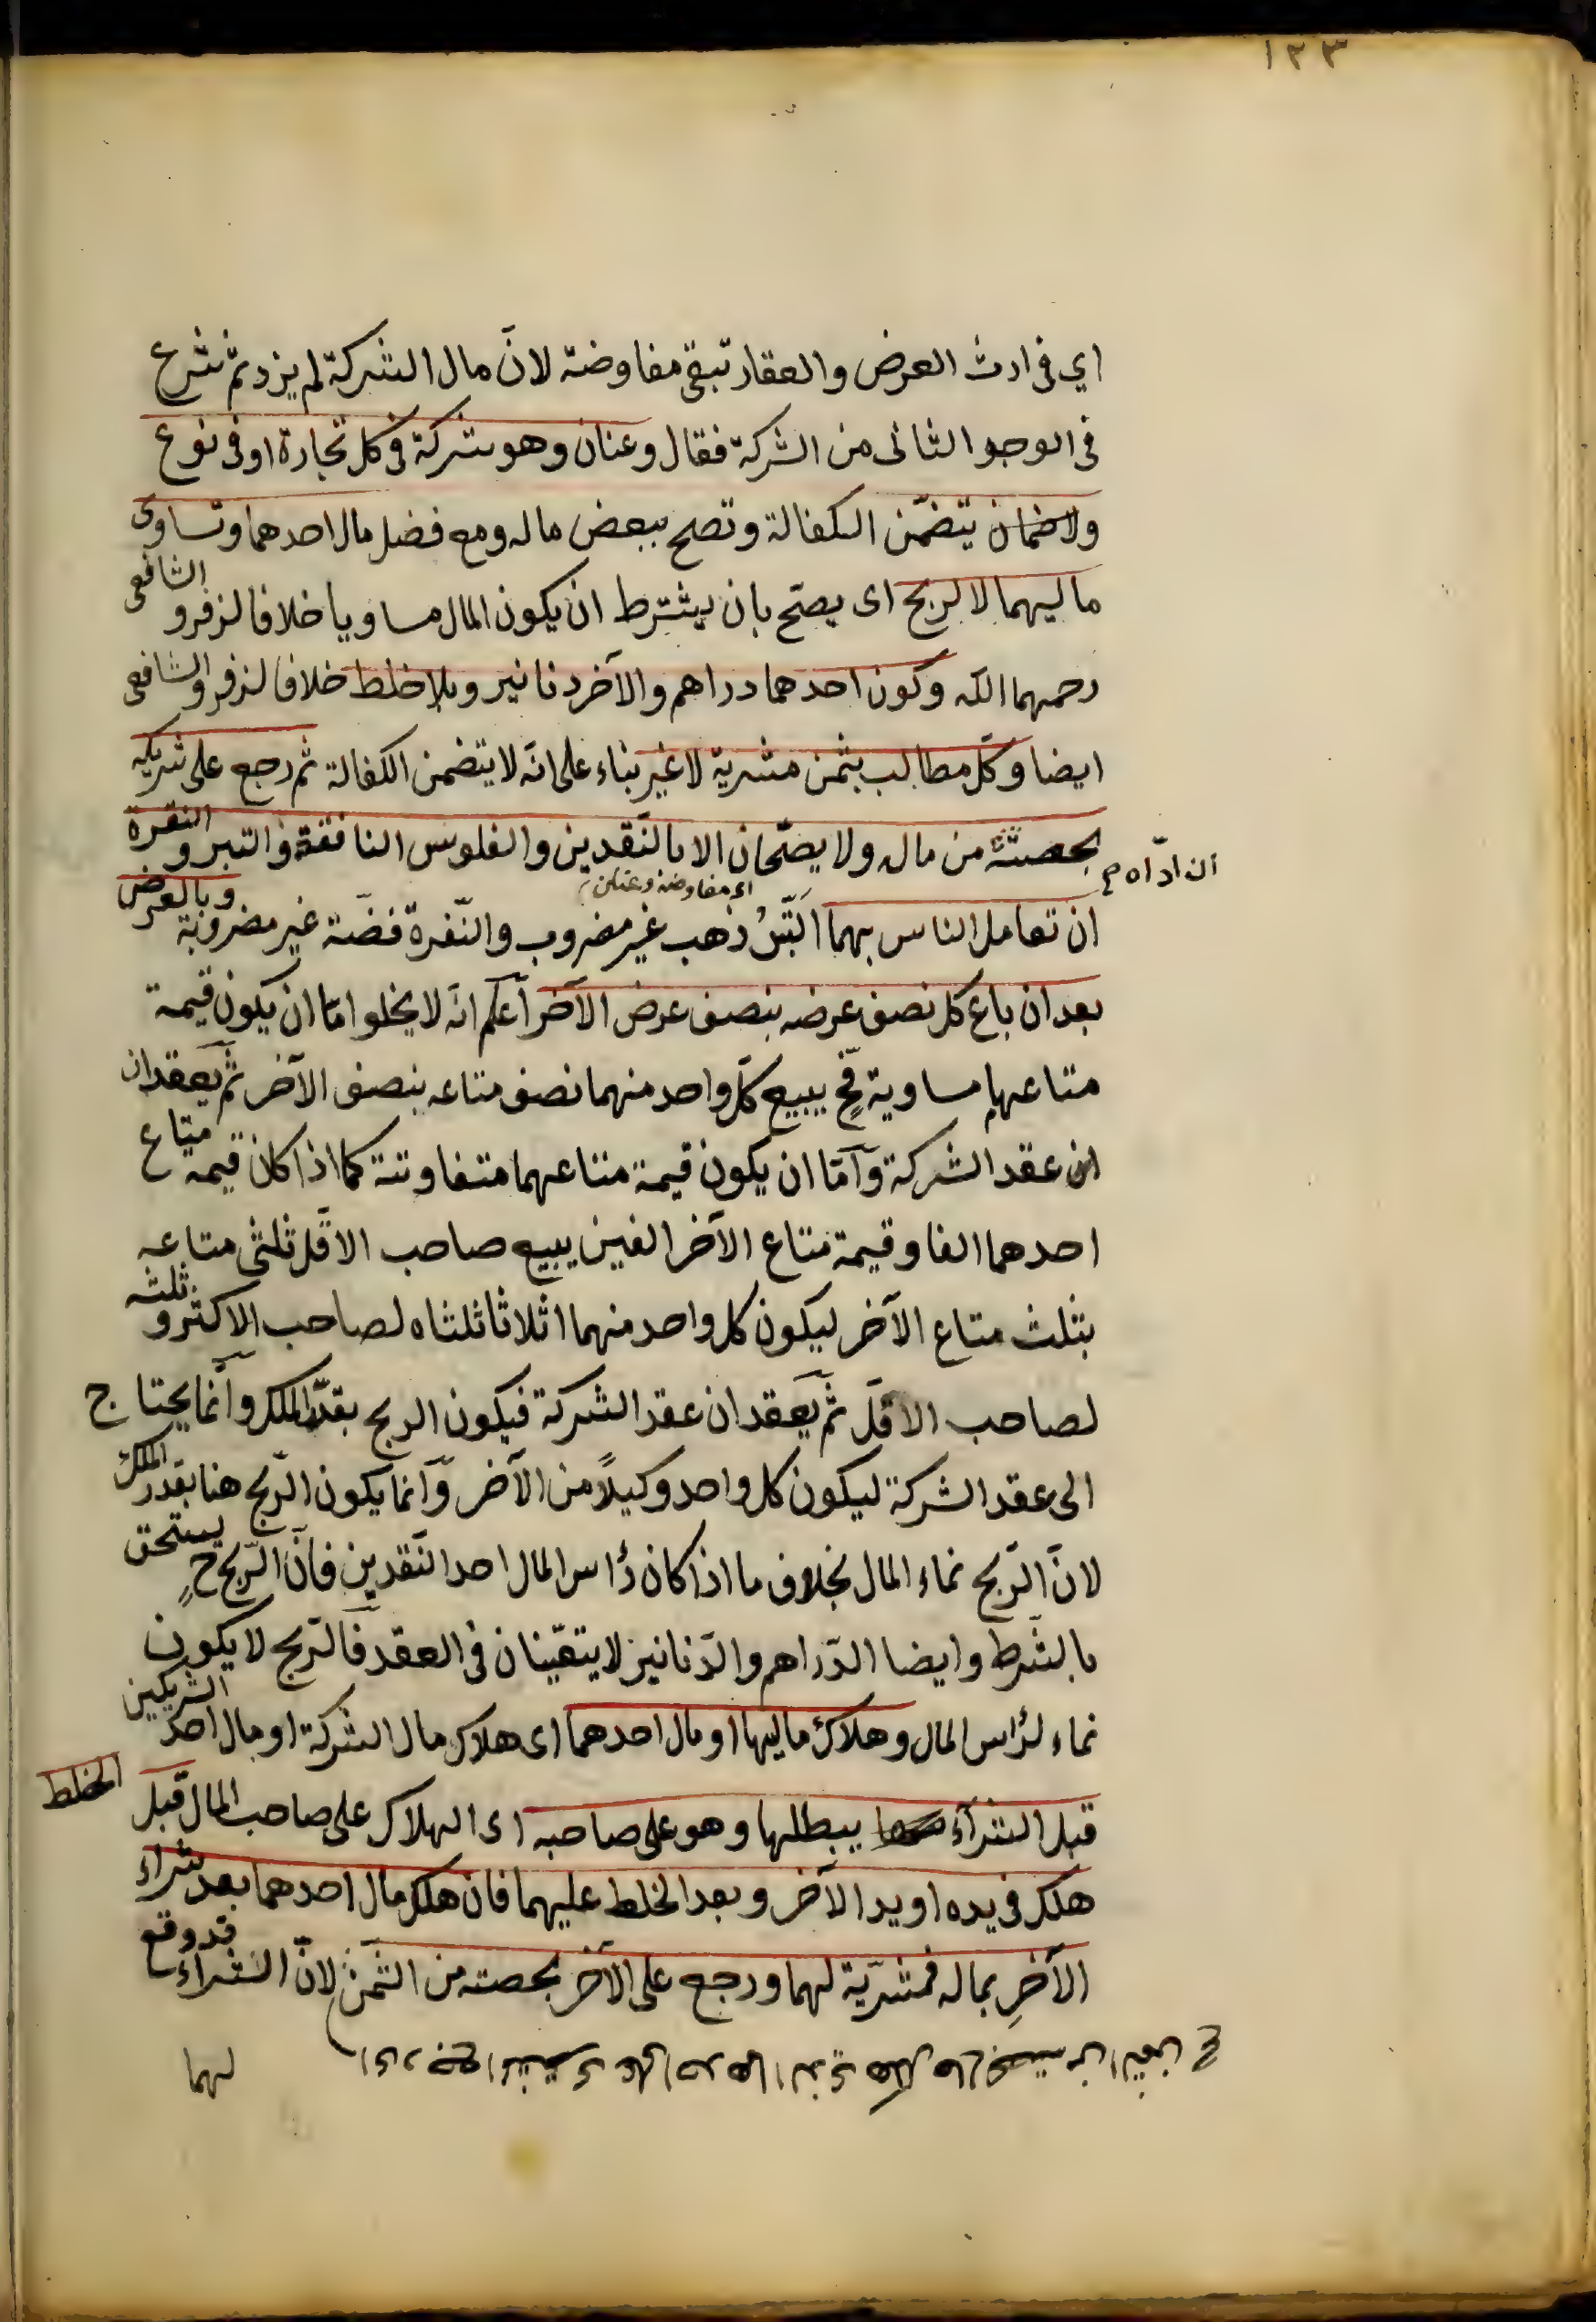 ١٢٣
اي في ارث العرض والعقار تبقى مفاوضة لانّ مال الشركة لم يزد ثمّ شرع
في الوجو الثاني من الشركة فقال وعنان وهو شركة في كل تجارة او في نوع
ولا يتضمّن الكفالة وتصح ببعض ماله ومع فضل مال احدهما وتساوى
ماليهما لا لربح اى يصحّ بان يشترط ان يكون المال مساويا خلافا لزفر والشافعى
رحمهما الله وكون احدهما دراهم والآخر دنانير وبلا خلط خلافا لزفر والشافعى
ايضا وكلّ مطالب بثمن مشريّه لا غير بناء على انّه لا يتضمن الكفالة ثم رجع على شريكه
بحصته من ماله ولا يصحّان الا بالنّقدين والفلوس النافقة والتبر والنقرة
ان ادّاه م
اى مفاوضة وعنان
ان تعامل الناس بهما التّبر ذهب غير مضروب والنّقرة فضّة غير مضروبة وبالعرض
بعد ان باع كل نصف عرضه بنصف عرض الآخر اعلم انّه لا يخلوا امّا ان يكون قيمة
متاعهما مساوية فح يبيع كلّ واحد منهما نصف متاعه بنصف الآخر ثمّ يعقدان
عقد الشركة وامّا ان يكون قيمة متاعهما متفاوتة كما اذا كان قيمة متاع
احدهما الفا وقيمة متاع الآخر الفين يبيع صاحب الاقلّ ثلثى متاعه
بثلث متاع الآخر ليكون كل واحد منهما اثلاثا ثلثاه لصاحب الاكثر وثلثه
لصاحب الاقلّ ثمّ يعقدان عقد الشركة فيكون الربح بقدر الملك وانّما يحتاج
الى عقد الشركة ليكون كل واحد وكيلاً من الآخر وانّما يكون الرّبح هنا بقدر الملك
لانّ الرّبح نماء المال بخلاف ما اذا كان رأس المال احد النّقدين فانّ الرّبح ح يستحق
بالشّرط وايضا الدّراهم والدّنانير لا يتعيّنان في العقد فالرّبح لا يكون
نماء لرأس المال وهلاك ماليهما او مال احدهما اى هلاك مال الشركة او مال احد الشريكين
قبل الشرآء يبطلها وهو على صاحبه اى الهلاك على صاحب المال قبل الخلط
هلك في يده او يد الآخر وبعد الخلط عليهما فان هلك مال احدهما بعد شراء
الآخر بماله فمشريّه لهما ورجع على الآخر بحصته من الثمن لانّ الشرآء قد وقع
لهما